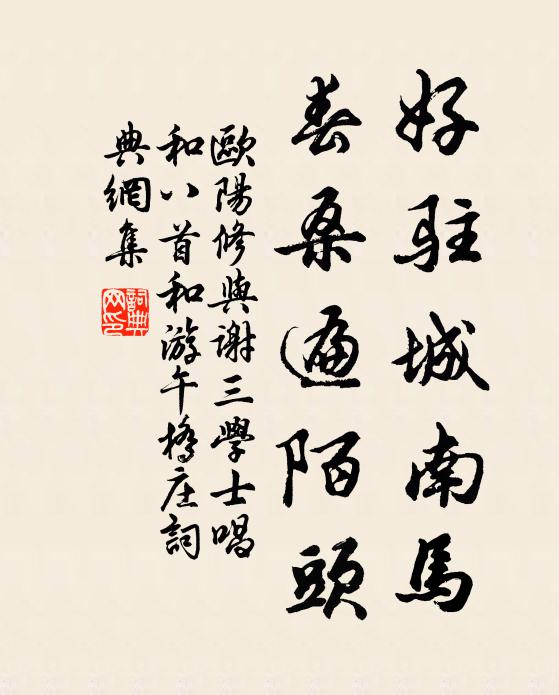 好駐城南馬
春桑遍陌頭
歐陽修與謝三學士唱
和八首和游午橋庄詞
典網集
詞典网印